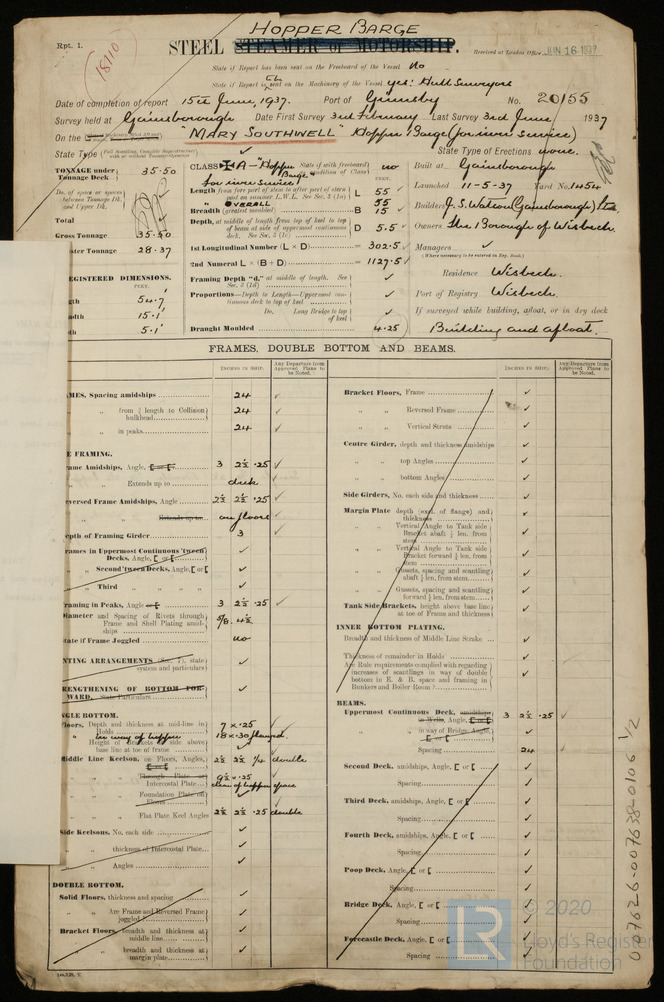 HOPPER BARGE
Rpt. 1.
STEEL STEAMER or MOTORSHIP.
Received at London Office JUN 16 1937
18110
State if Report has been sent on the Freeboard of the Vessel No
State if Report is sent on the Machinery of the Vessel yes: Hull Surveyors
Date of completion of report 15th June, 1937. Port of Grimsby No. 20155
Survey held at Gainsborough Date First Survey 3rd February Last Survey 3rd June 1937
On the "MARY SOUTHWELL" Hopper Barge (for river service)
State Type (Full Scantling, Complete Superstructure with or without Tonnage Openings) ✓ State Type of Erections none.
TONNAGE under Tonnage Deck 35.50
Do. of space or spaces between Tonnage Dk. and Upper Dk.
Total
Gross Tonnage 35.50
ster Tonnage 28.37
EGISTERED DIMENSIONS.
FEET.
gth 54.7'
adth 15.1'
th 5.1'
CLASS ✠A – "Hopper Barge" State if with freeboard condition of Class no
for river service
FEET.
Length from fore part of stem to after part of stern post on summer L.W.L. See Sec. 3 (1a) L 55 ✓
" OVERALL 55
Breadth (greatest moulded) B 15 ✓
Depth, at middle of length from top of keel to top of beam at side of uppermost continuous deck. See Sec. 3 (1c) D 5.5 ✓
1st Longitudinal Number (L × D) = 302.5 ✓
2nd Numeral L × (B + D) = 1127.5 ✓
Framing Depth "d," at middle of length. See Sec. 3 (1d) ✓
Proportions—Depth to Length—Uppermost continuous deck to top of keel ✓
Do. Long Bridge to top of keel ✓
Draught Moulded 4.25
Built at Gainsborough
Launched 11-5-37 Yard No. 1454
Builders J. S. Watson (Gainsborough) Ltd.
Owners The Borough of Wisbech.
Managers ✓
(Where necessary to be entered in Reg. Book.)
Residence Wisbech.
Port of Registry Wisbech.
If surveyed while building, afloat, or in dry dock
Building and afloat.
FRAMES, DOUBLE BOTTOM AND BEAMS.
INCHES IN SHIP. Any Departure from Approved Plans to be Noted.
AMES, Spacing amidships 24 ✓
" " from ⅕ length to Collision bulkhead 24 ✓
" " in peaks 24 ✓
E FRAMING.
rame Amidships, Angle, [ or [ 3 2½ .25 ✓
" " Extends up to deck
eversed Frame Amidships, Angle 2½ 2½ .25 ✓
" " Extends up to on floors
epth of Framing Girder 3 ✓
rames in Uppermost Continuous 'tween Decks, Angle, [ or [ ✓
" Second 'tween Decks, Angle, [ or [ ✓
" Third " " " ✓
raming in Peaks, Angle or [ 3 2½ .25 ✓
iameter and Spacing of Rivets through Frame and Shell Plating amidships 5/8. 4½
tate if Frame Joggled no
NTING ARRANGEMENTS (Sec. 7), state system and particulars ✓
RENGTHENING OF BOTTOM FORWARD. State Particulars ✓
NGLE BOTTOM.
loors, Depth and thickness at mid-line in Holds 7 × .25 ✓
" in way of hopper 18 × .30 flanged.
Height of Brackets at side above base line at toe of frame ✓
iddle Line Keelson, on Floors, Angles, [ or [ 2½ 2½ ¼ double
" " Through Plate or Intercostal Plate 9½ × .25
clear of hopper space
" " Foundation Plate on Floors ✓
" " Flat Plate Keel Angles 2½ 2½ .25 double
ide Keelsons, No. each side ✓
" " thickness of Intercostal Plate ✓
" " Angles ✓
DOUBLE BOTTOM.
Solid Floors, thickness and spacing ✓
" " Are Frame and Reversed Frame joggled ✓
Bracket Floors, breadth and thickness at middle line ✓
" " breadth and thickness at margin plate ✓
INCHES IN SHIP. Any Departure from Approved Plans to be Noted.
Bracket Floors, Frame ✓
" " Reversed Frame ✓
" " Vertical Struts ✓
Centre Girder, depth and thickness amidships ✓
" " top Angles ✓
" " bottom Angles ✓
Side Girders, No. each side and thickness ✓
Margin Plate depth (excl. of flange) and thickness ✓
" " Vertical Angle to Tank side Bracket abaft ¼ len. from stem ✓
" " Vertical Angle to Tank side Bracket forward ¼ len. from stem ✓
" " Gussets, spacing and scantling abaft ¼ len. from stem ✓
" " Gussets, spacing and scantling forward ¼ len. from stem ✓
Tank Side Brackets, height above base line at toe of Frame and thickness ✓
INNER BOTTOM PLATING.
Breadth and thickness of Middle Line Strake ✓
Thickness of remainder in Holds ✓
Are Rule requirements complied with regarding increases of scantlings in way of double bottom in E. & B. space and framing in Bunkers and Boiler Room? ✓
BEAMS.
Uppermost Continuous Deck, amidships, in Wells, Angle, [ or [ 3 2½ .25 ✓
" " in way of Bridge, Angle, [ or [ ✓
Spacing 24 ✓
Second Deck, amidships, Angle, [ or [ ✓
Spacing ✓
Third Deck, amidships, Angle, [ or [ ✓
Spacing ✓
Fourth Deck, amidships, Angle, [ or [ ✓
Spacing ✓
Poop Deck, Angle, [ or [ ✓
Spacing ✓
Bridge Deck, Angle, [ or [ ✓
Spacing ✓
Forecastle Deck, Angle, [ or [ ✓
Spacing ✓
007626-007638-0106 1/2
LR
© 2020
Lloyd's Register
Foundation